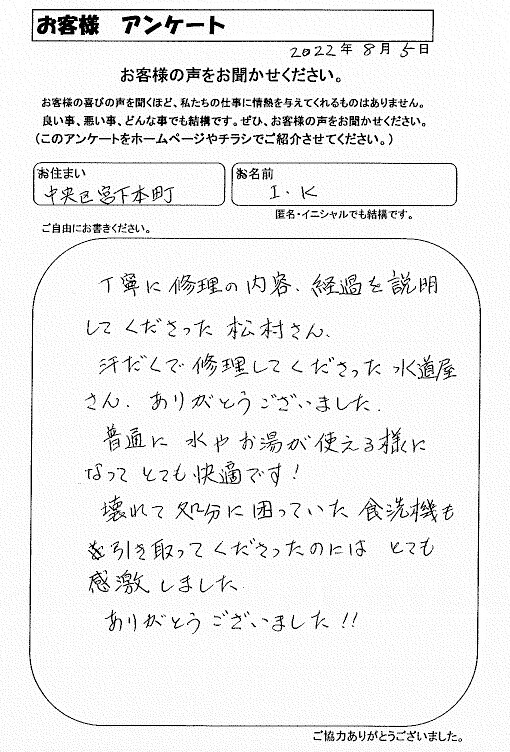 お客様 アンケート
2022年 8月 5日
お客様の声をお聞かせください。
お客様の喜びの声を聞くほど、私たちの仕事に情熱を与えてくれるものはありません。
良い事、悪い事、どんな事でも結構です。ぜひ、お客様の声をお聞かせください。
(このアンケートをホームページやチラシでご紹介させてください。)
お住まい
中央区宮下本町
お名前
I.K
匿名・イニシャルでも結構です。
ご自由にお書きください。
丁寧に修理の内容、経過を説明
してくださった松村さん、
汗だくで修理してくださった水道屋
さん、ありがとうございました。
普通に水やお湯が使える様に
なってとても快適です!
壊れて処分に困っていた食洗機も
引き取ってくださったのにはとても
感激しました。
ありがとうございました!!
ご協力ありがとうございました。